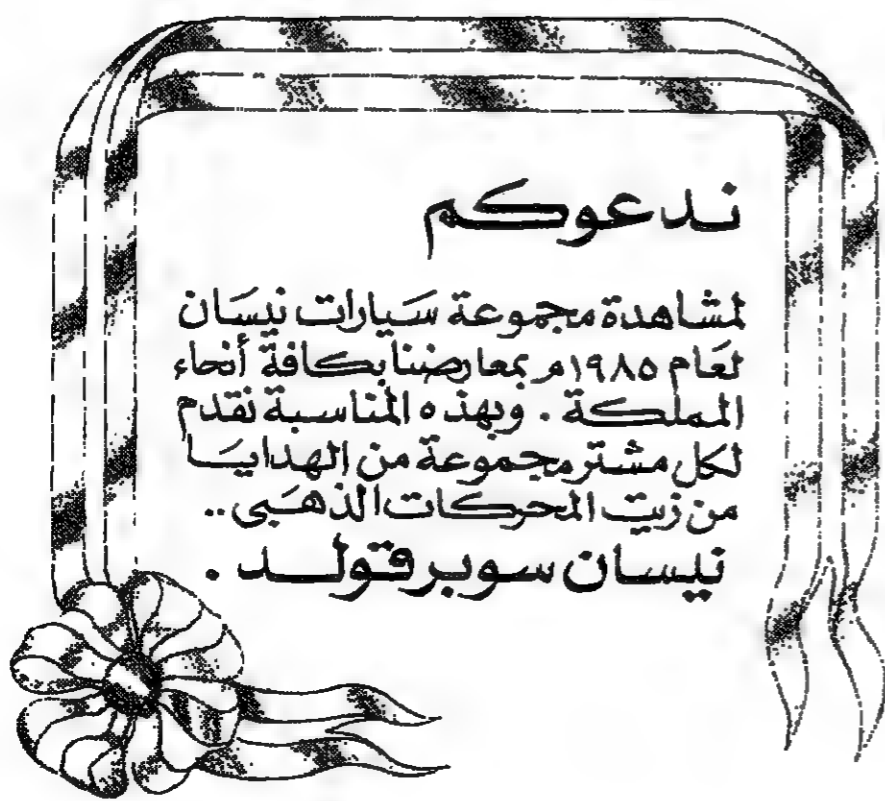 ندعوكم
لمشاهدة مجموعة سَيارات نيسَان
لعَام ١٩٨٥م بمعارضنا بكافة أنحاء
المملكة . وبهذه المناسبة نقدم
لكل مشتر مجموعة من الهدايَا
من زيت المحركات الذهَبى ..
نيسان سوبر قولد .